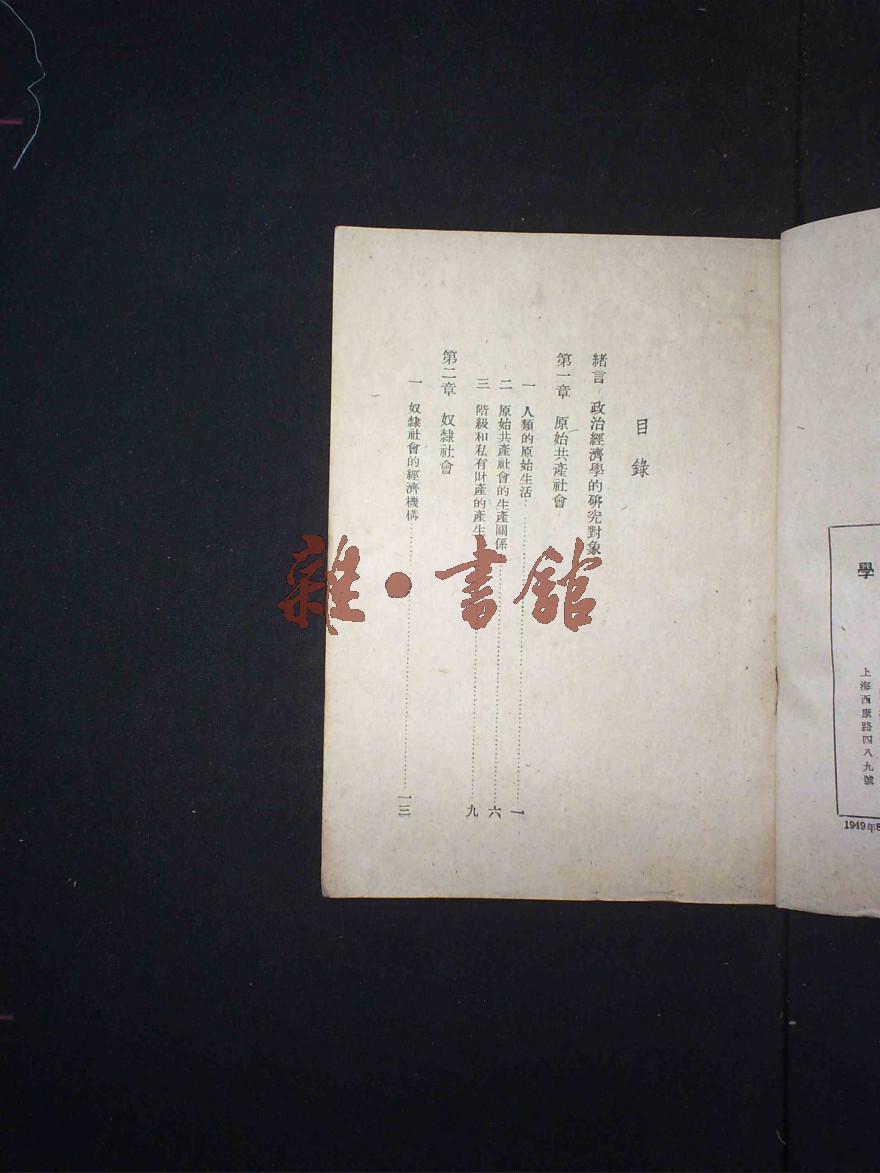 學
上海西康路四八九號
1949年
目錄
緒言 政治經濟學的研究對象
第一章 原始共產社會
一 人類的原始生活 一
二 原始共產社會的生產關係 六
三 階級和私有財產的產生 九
第二章 奴隸社會
一 奴隸社會的經濟機構 一三
雜·書館